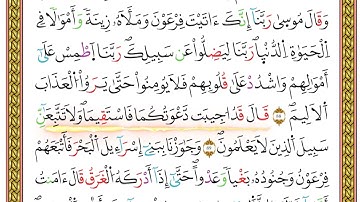 وَقَالَ مُوسَىٰ رَبَّنَآ إِنَّكَ ءَاتَيْتَ فِرْعَوْنَ وَمَلَأَهُۥ زِينَةً وَأَمْوَٰلًا فِى
اِ۬لْحَيَوٰةِ اِ۬لدُّنْيَا رَبَّنَا لِيَضِلُّوا۟ عَن سَبِيلِكَ رَبَّنَا اَ۪طْمِسْ عَلَىٰٓ
أَمْوَٰلِهِمْ وَاشْدُدْ عَلَىٰ قُلُوبِهِمْ فَلَا يُومِنُوا۟ حَتَّىٰ يَرَوُا۟ اُ۬لْعَذَابَ
اَ۬لْأَلِيمَ قَالَ قَدُ ا۟جِيبَت دَّعْوَتُكُمَا فَاسْتَقِيمَا وَلَا تَتَّبِعَٰٓنِّ
سَبِيلَ اَ۬لذِينَ لَا يَعْلَمُونَ وَجَٰوَزْنَا بِبَنِىٓ إِسْرَآءِيلَ اَ۬لْبَحْرَ فَأَتْبَعَهُمْ
فِرْعَوْنُ وَجُنُودُهُۥ بَغْيًا وَعَدْوًا حَتَّىٰٓ إِذَآ أَدْرَكَهُ اُ۬لْغَرَقُ قَالَ ءَامَنتُ